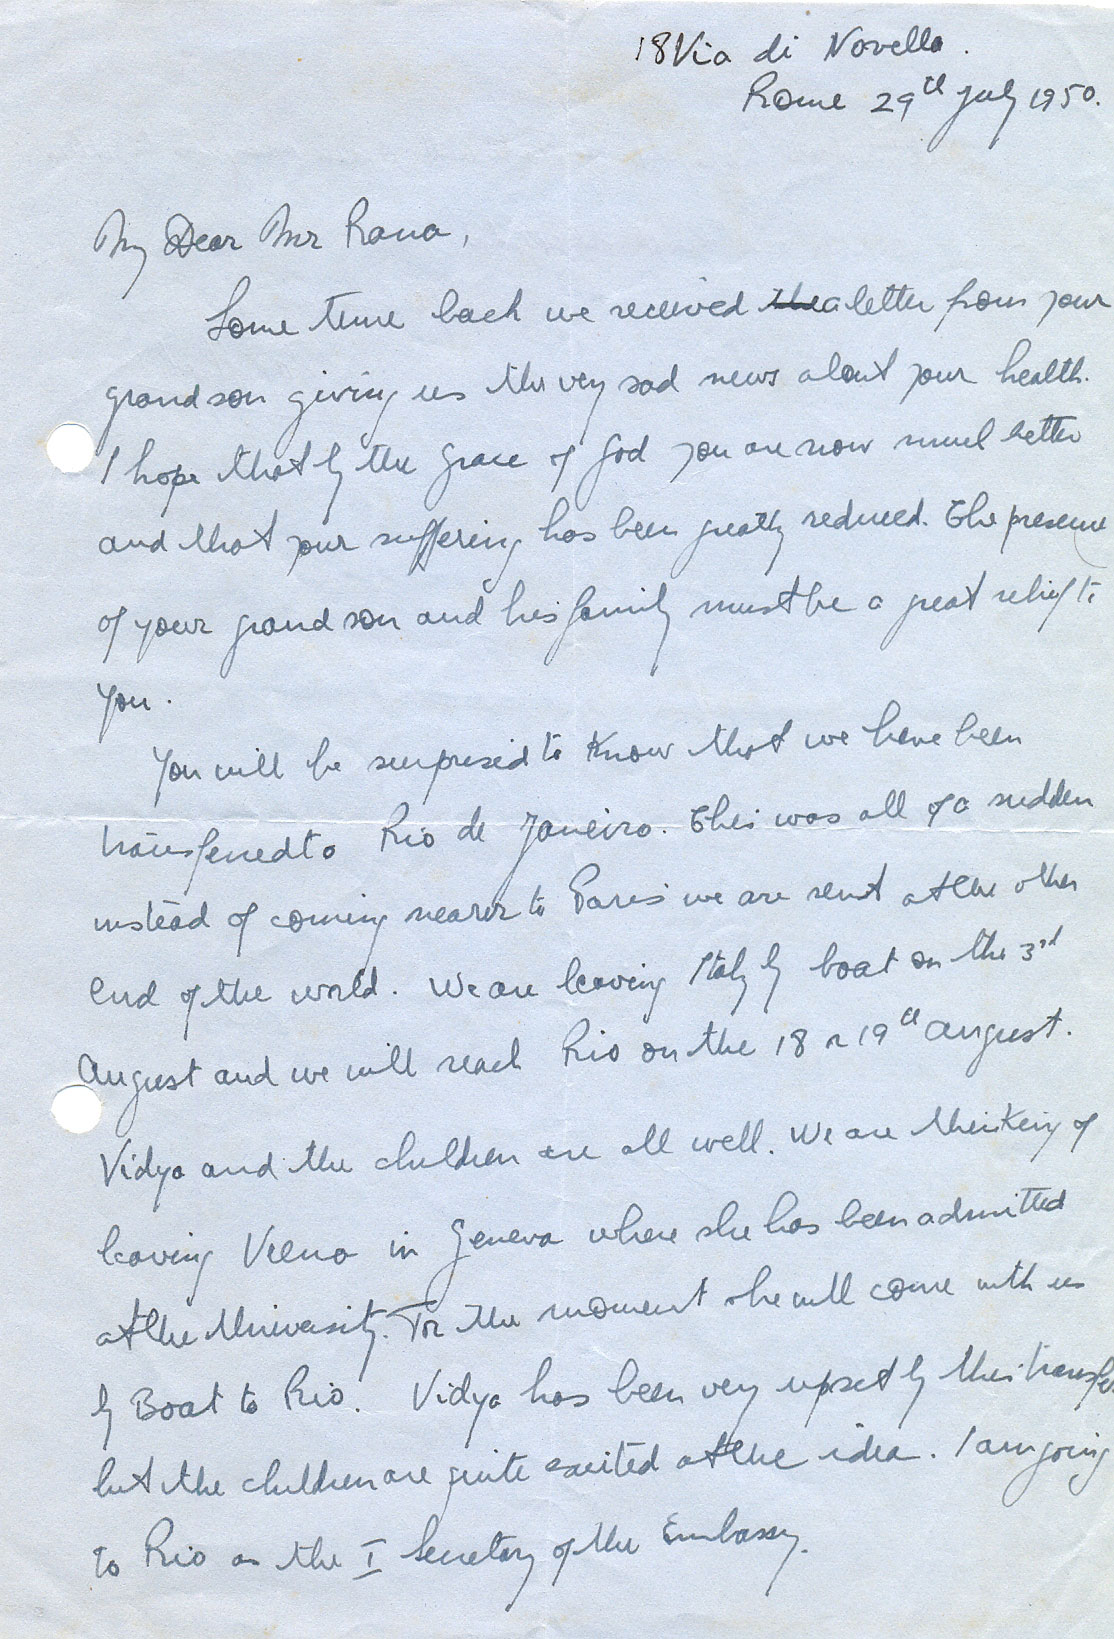 18 Via di Novella.
Rome 29th July 1950.
My Dear Mr Rana,
Some time back we received the a letter from your
grandson giving us the very sad news about your health.
I hope that by the grace of God you are now much better
and that your suffering has been greatly reduced. The presence
of your grand son and his family must be a great relief to
you.
You will be surprised to know that we have been
transferred to Rio de Janeiro. This was all of a sudden
instead of coming nearer to Paris we are sent at the other
end of the world. We are leaving Italy by boat on the 3rd
August and we will reach Rio on the 18 or 19th August.
Vidya and the children are all well. We are thinking of
leaving Veena in Geneva where she has been admitted
at the University. For the moment she will come with us
by Boat to Rio. Vidya has been very upset by this transfer
but the children are quite excited at the idea. I am going
to Rio as the I Secretary of the Embassy.